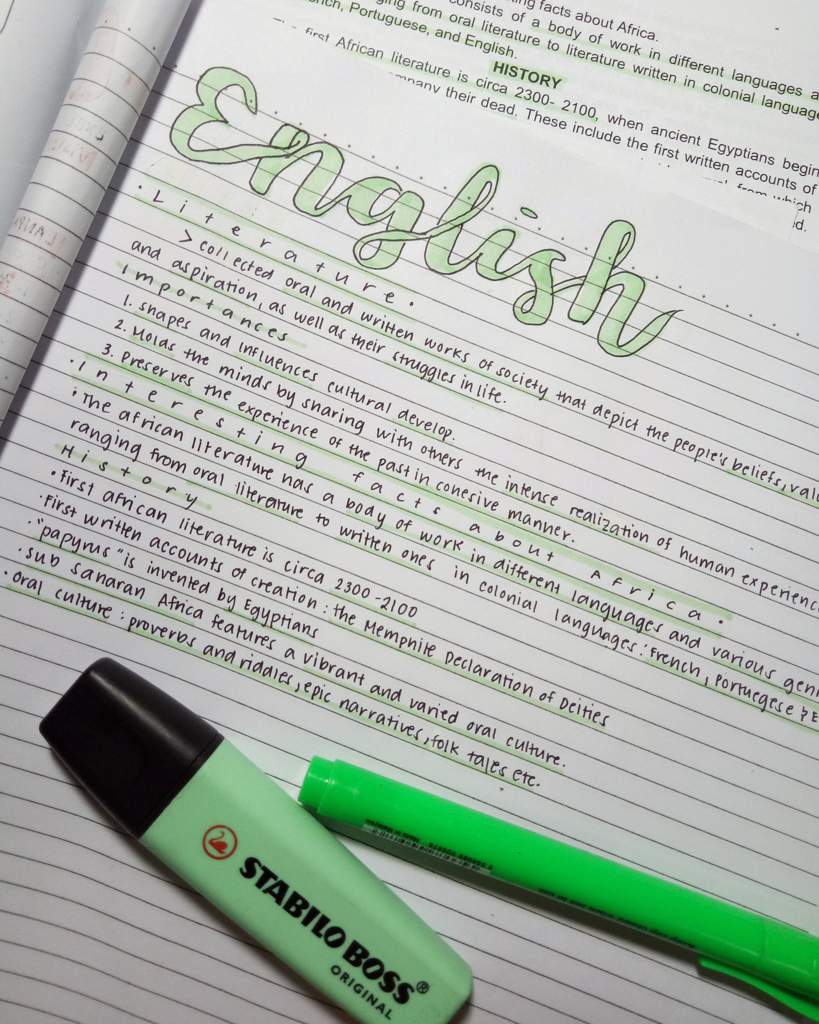 ng facts about Africa.
onsists of a body of work in different languages a
ging from oral literature to literature written in colonial language
nch, Portuguese, and English.
HISTORY
first African literature is circa 2300- 2100, when ancient Egyptians begin
mpany their dead. These include the first written accounts of
from which
d.
English
• Literature.
> collected oral and written works of society that depict the people's beliefs, valu
and aspiration, as well as their struggles in life.
Importances
1. shapes and influences cultural develop.
2. Molds the minds by sharing with others the intense realization of human experience
3. Preserves the experience of the past in conesive manner.
• Interesting facts about Africa.
• The african literature has a body of work in different languages and various genr
ranging from oral literature to written ones in colonial languages: French, Portuegese & E
History
• First african literature is circa 2300-2100
• First written accounts of creation: the Memphite Declaration of Deities
• "papyrus" is invented by Egyptians
• sub saharan Africa features a vibrant and varied oral culture.
• oral culture: proverbs and riddles, epic narratives, folk tales etc.
STABILO BOSS®
ORIGINAL